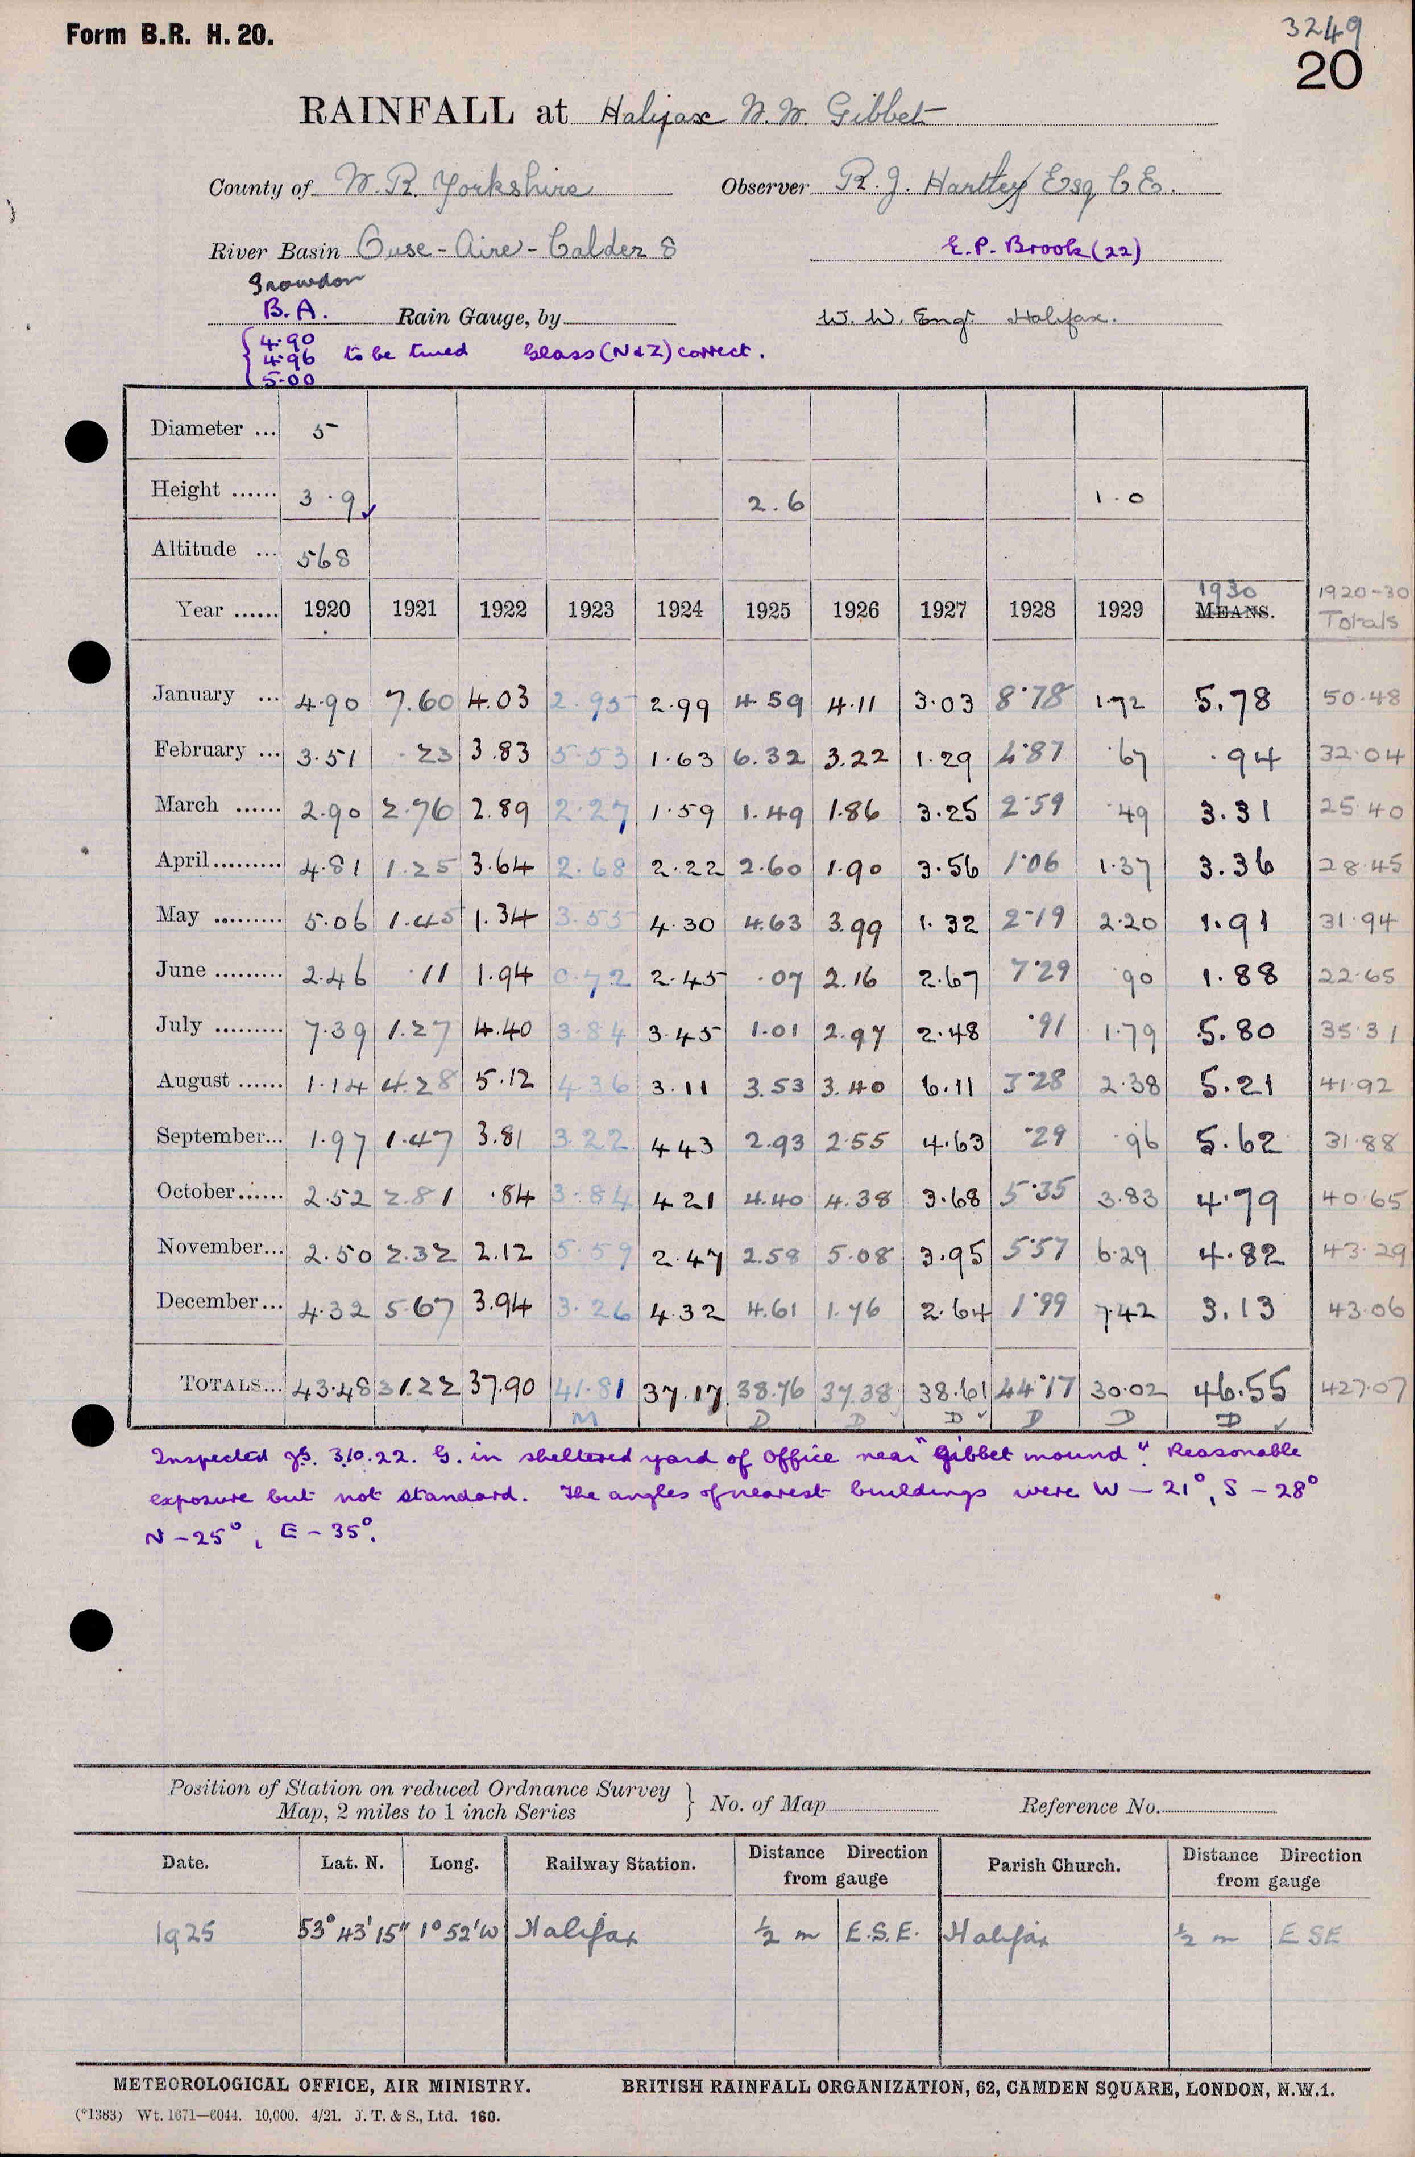 Form B.R. H. 20.
3249
20
RAINFALL at Halifax W.W. Gibbet
County of W.R. Yorkshire Observer R.J. Hartley Esq C.E.
River Basin Ouse-Aire-Calder 8 E.P. Brook (22)
Snowdon
B.A. Rain Gauge, by W.W. Engr. Halifax.
4.90
4.96 to be trued Glass (N&Z) correct.
5.00
Diameter ... 5
Height ...... 3.9 2.6 1.0
Altitude ... 568
Year ...... 1920 1921 1922 1923 1924 1925 1926 1927 1928 1929 1930 MEANS. 1920-30 Totals
January ... 4.90 7.60 4.03 2.95 2.99 4.59 4.11 3.03 8.78 1.72 5.78 50.48
February ... 3.51 .23 3.83 5.53 1.63 6.32 3.22 1.29 4.87 .67 .94 32.04
March ...... 2.90 2.76 2.89 2.27 1.59 1.49 1.86 3.25 2.59 .49 3.31 25.40
April......... 4.81 1.25 3.64 2.68 2.22 2.60 1.90 3.56 1.06 1.37 3.36 28.45
May ......... 5.06 1.45 1.34 3.55 4.30 4.63 3.99 1.32 2.19 2.20 1.91 31.94
June ......... 2.46 .11 1.94 0.72 2.45 .07 2.16 2.67 7.29 .90 1.88 22.65
July ......... 7.39 1.27 4.40 3.84 3.45 1.01 2.97 2.48 .91 1.79 5.80 35.31
August ...... 1.14 4.28 5.12 4.36 3.11 3.53 3.40 6.11 3.28 2.38 5.21 41.92
September... 1.97 1.47 3.81 3.22 4.43 2.93 2.55 4.63 .29 .96 5.62 31.88
October...... 2.52 2.81 .84 3.84 4.21 4.40 4.38 3.68 5.35 3.83 4.79 40.65
November... 2.50 2.32 2.12 5.59 2.47 2.58 5.08 3.95 5.57 6.29 4.82 43.29
December... 4.32 5.67 3.94 3.26 4.32 4.61 1.76 2.64 1.99 7.42 3.13 43.06
TOTALS... 43.48 31.22 37.90 41.81 37.17 38.76 37.38 38.61 44.17 30.02 46.55 427.07
M D D D D D D
Inspected 3.10.22. G. in sheltered yard of Office near "Gibbet mound". Reasonable
exposure but not standard. The angles of nearest buildings were W – 21°, S – 28°
N – 25°, E – 35°.
Position of Station on reduced Ordnance Survey
Map, 2 miles to 1 inch Series } No. of Map Reference No.
Date. Lat. N. Long. Railway Station. Distance from gauge Direction Parish Church. Distance from gauge Direction
1925 53° 43' 15" 1° 52' W Halifax ½ m E.S.E. Halifax ½ m ESE
METEOROLOGICAL OFFICE, AIR MINISTRY. BRITISH RAINFALL ORGANIZATION, 62, CAMDEN SQUARE, LONDON, N.W.1.
(*1383) Wt. 1671—6044. 10,000. 4/21. J. T. & S., Ltd. 160.